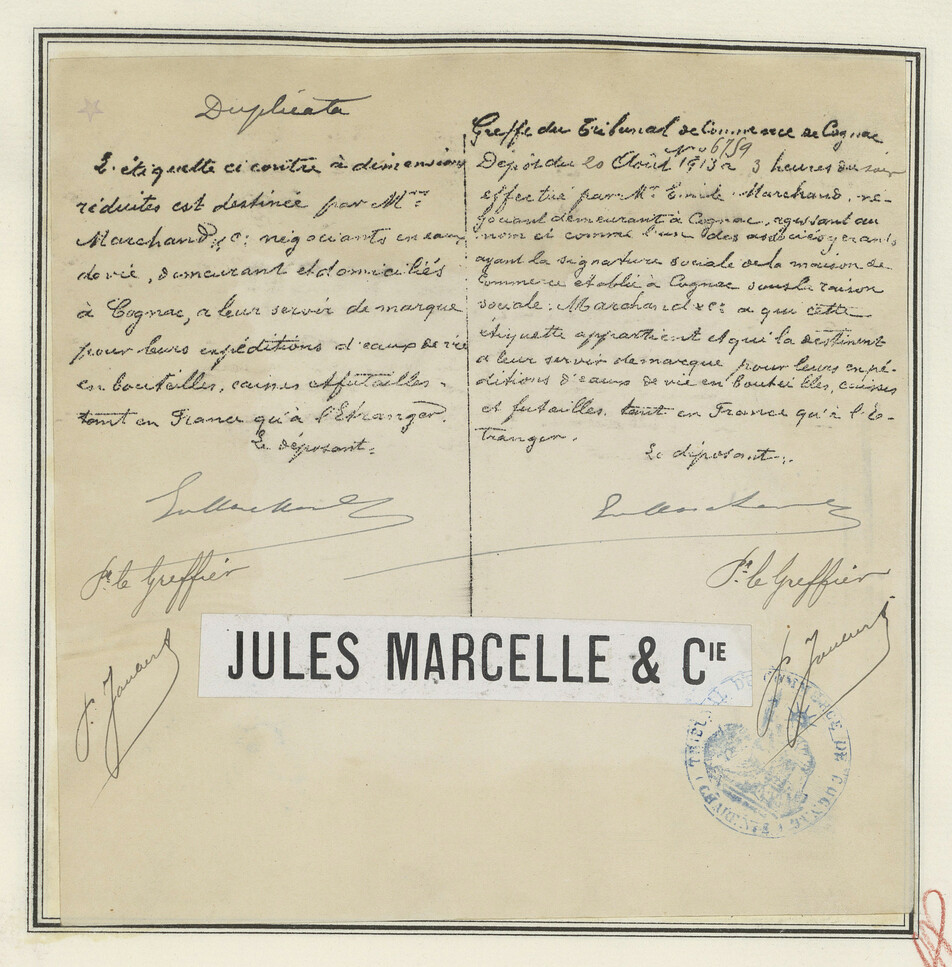 Duplicata
L'étiquette ci contre à dimensions
réduites est destinée par M.rs
Marchand & Cie négociants en eaux
de vie, demeurant et domiciliés
à Cognac, a leur servir de marque
pour leurs expéditions d'eaux de vie
en bouteilles, caisses et futailles
tant en France qu'à l'Etranger.
Le déposant:
Em Marchand
Pr. le Greffier
Greffe du Tribunal de Commerce de Cognac
No 6759
Dépôt du 20 Août 1913 à 3 heures du soir
effectué par Mr. Emile Marchand, né-
gociant demeurant à Cognac, agissant au
nom et comme l'un des associés gérants
ayant la signature sociale de la maison de
Commerce établie à Cognac sous la raison
sociale: Marchand & Cie a qui cette
étiquette appartient et qui la destinent
a leur servir de marque pour leurs expé-
ditions d'eaux de vie en bouteilles, caisses
et futailles, tant en France qu'à l'é-
tranger.
Le déposant:
Em Marchand
Pr. le Greffier
JULES MARCELLE & CIE
TRIBUNAL DE COMMERCE DE COGNAC